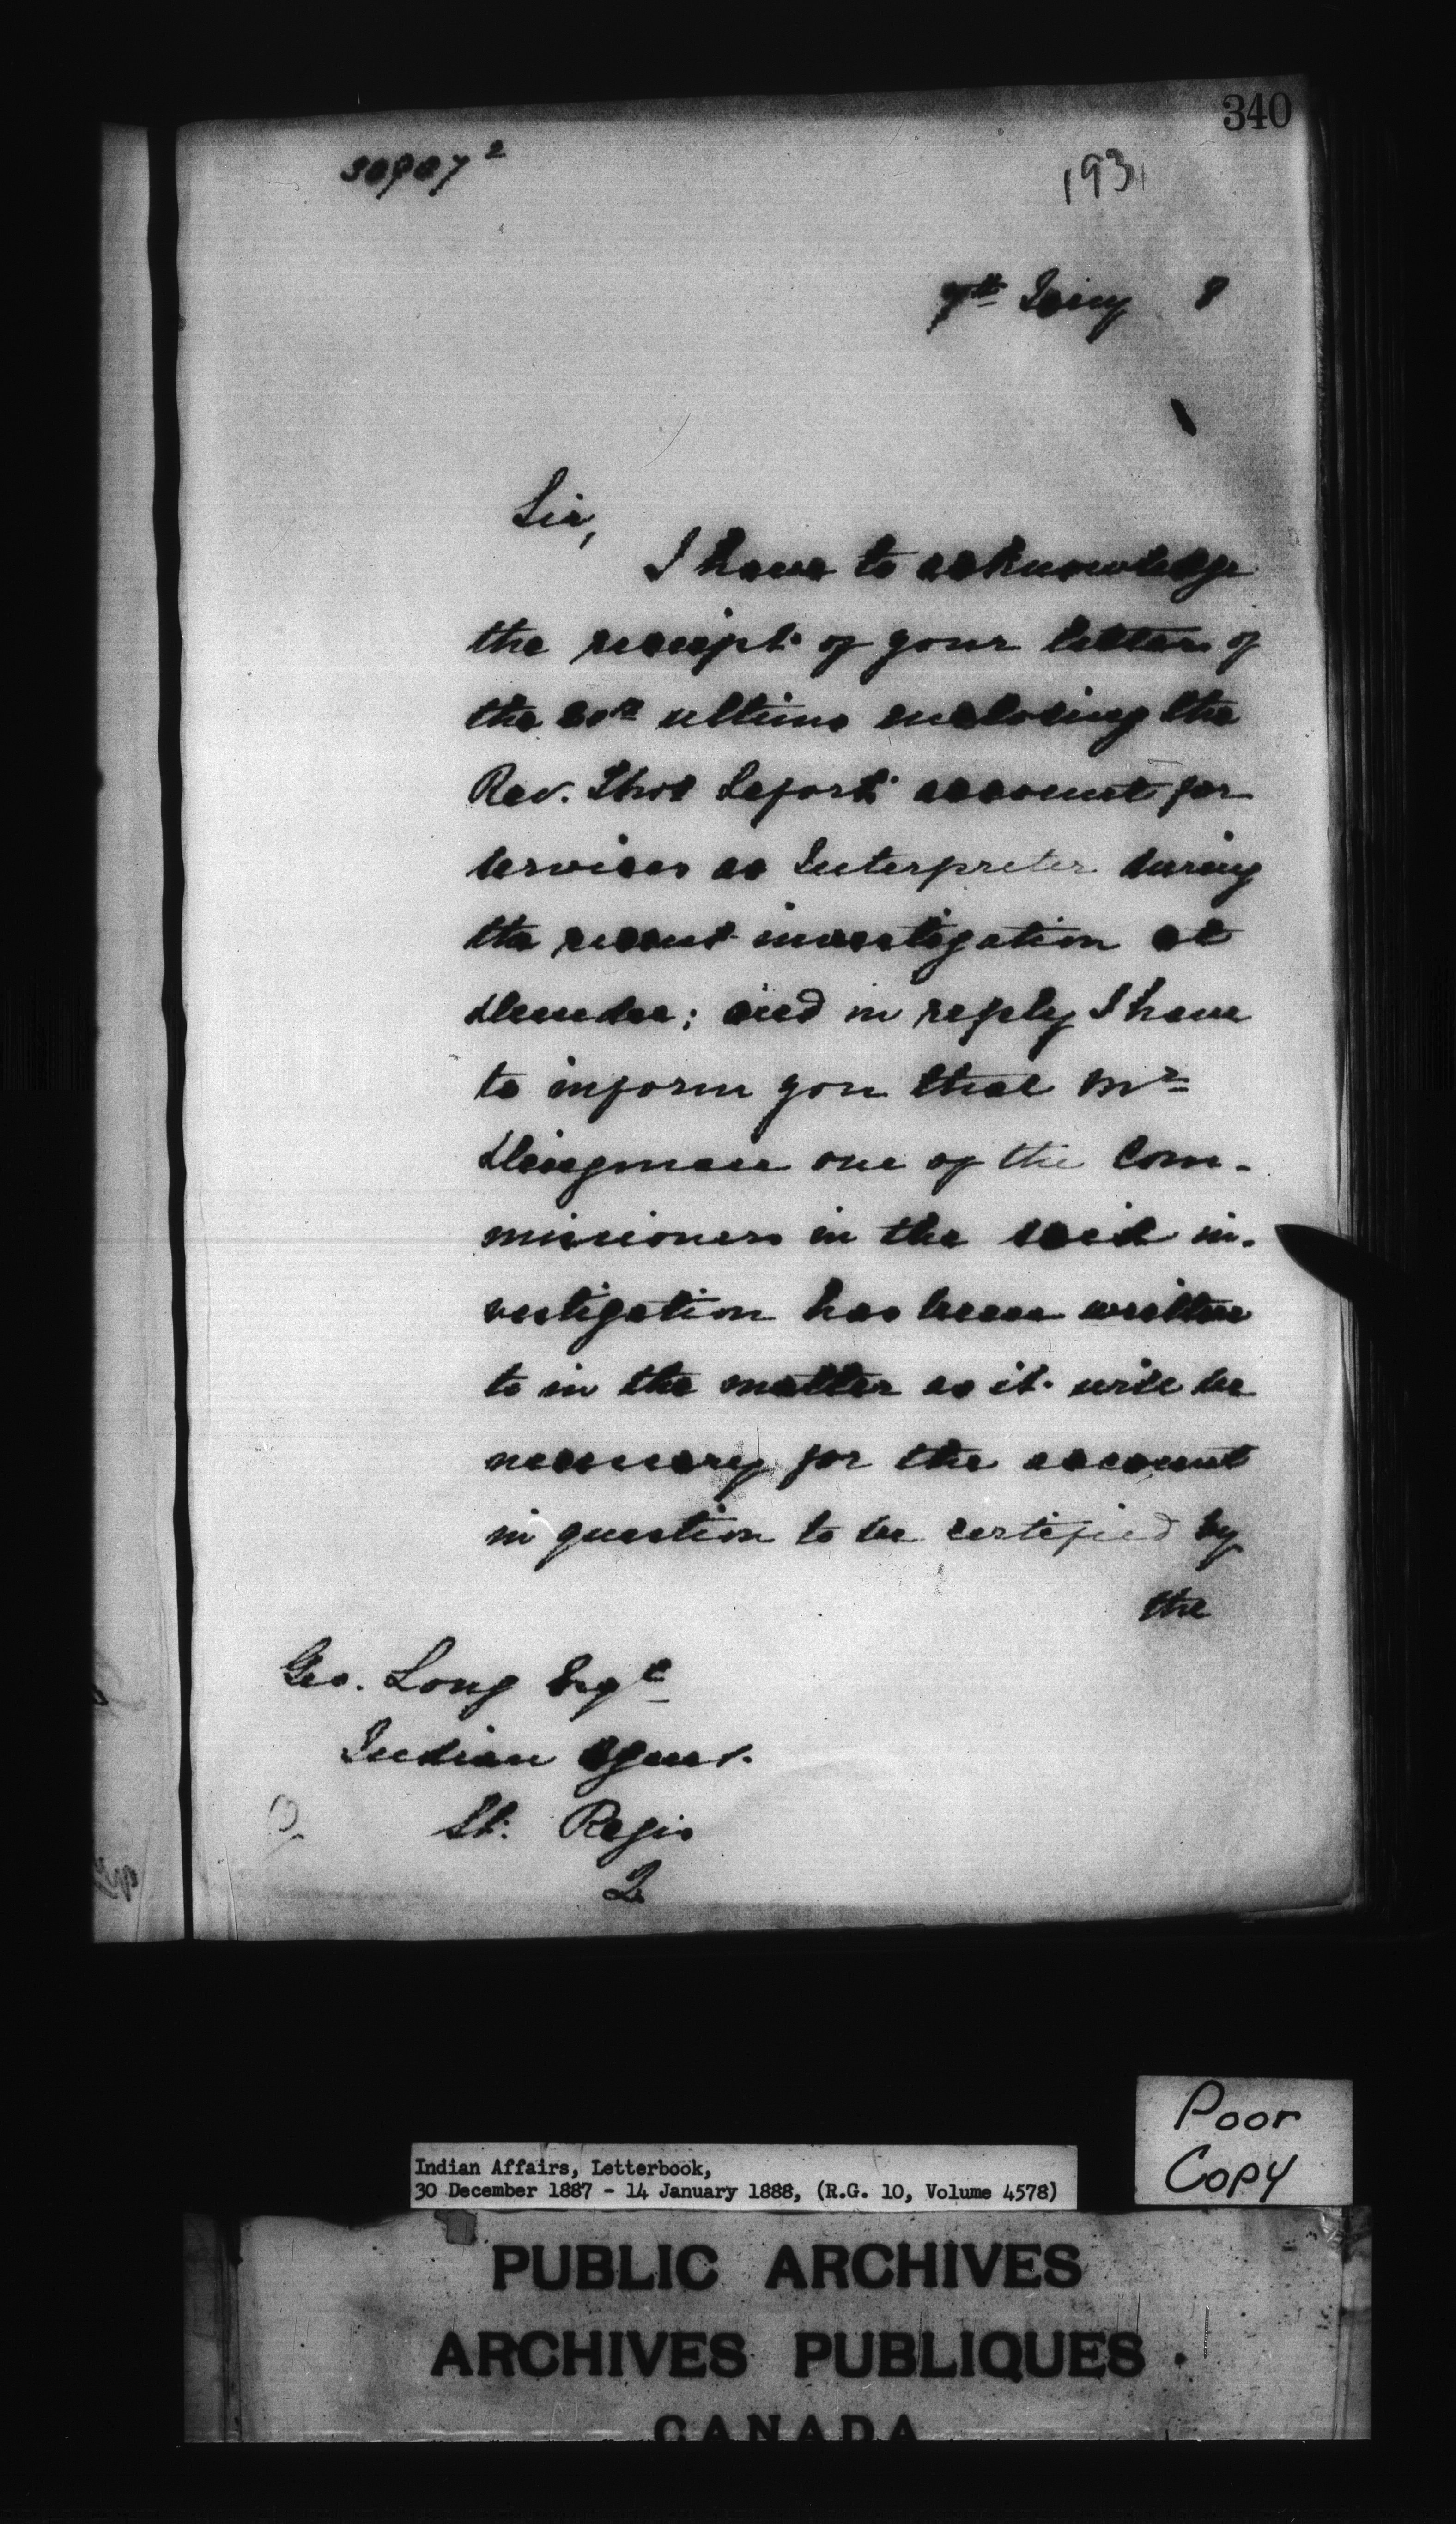 340
30907²
193
7th Jany 8
Sir,
I have to acknowledge
the receipt of your letter of
the 20th ultimo enclosing the
Rev. account for
services as Interpreter during
the recent investigation at
Dundee; and in reply I have
to inform you that Mr
Dingman one of the Com-
missioners in the said in-
vestigation has been written
to in the matter as it will be
necessary for the account
in question to be certified by
the
Geo. Long Esqre
Indian Agent.
St. Regis
2
Poor
Copy
Indian Affairs, Letterbook,
30 December 1887 - 14 January 1888, (R.G. 10, Volume 4578)
PUBLIC ARCHIVES
ARCHIVES PUBLIQUES
CANADA